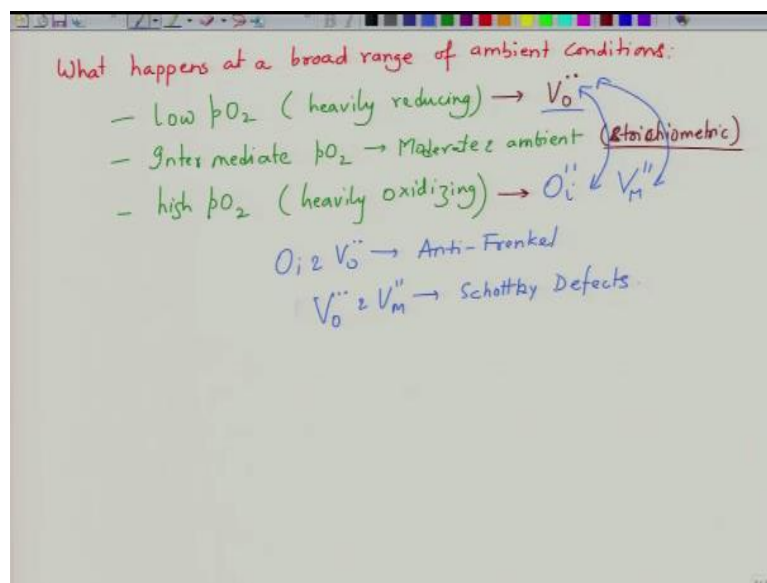 What happens at a broad range of ambient conditions:
– Low pO₂ (heavily reducing) → V_O^••
– Intermediate pO₂ → Moderate & ambient (Stoichiometric)
– high pO₂ (heavily oxidizing) → O_i'' V_M''
O_i & V_O^•• → Anti-Frenkel
V_O^•• & V_M'' → Schottky Defects.